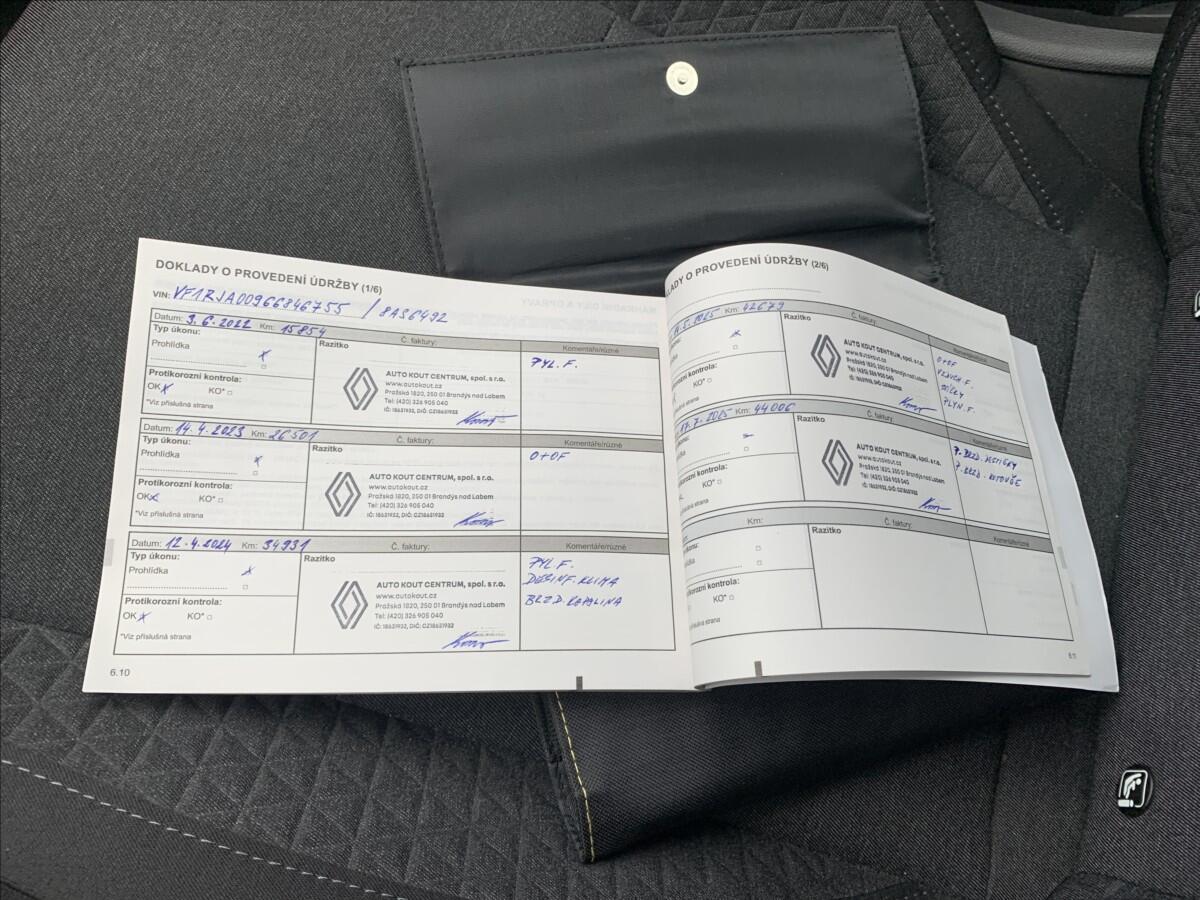 DOKLADY O PROVEDENÍ ÚDRŽBY (1/6)
VIN: VF1RJA00966846755 / 8AS6492
Datum: 9.6.2022 Km: 15854 Č. faktury: Komentáře/různé
Typ úkonu:
Prohlídka x
Protikorozní kontrola:
OK x KO*
*Viz příslušná strana
Razítko
AUTO KOUT CENTRUM, spol. s r.o.
www.autokout.cz
Pražská 1820, 250 01 Brandýs nad Labem
Tel: (420) 326 905 040
IČ: 18631932, DIČ: CZ18631932
PYL. F.
Datum: 14.4.2023 Km: 26501 Č. faktury: Komentáře/různé
Typ úkonu:
Prohlídka x
Protikorozní kontrola:
OK x KO*
*Viz příslušná strana
Razítko
AUTO KOUT CENTRUM, spol. s r.o.
www.autokout.cz
Pražská 1820, 250 01 Brandýs nad Labem
Tel: (420) 326 905 040
IČ: 18631932, DIČ: CZ18631932
O+OF
Datum: 12.4.2024 Km: 34931 Č. faktury: Komentáře/různé
Typ úkonu:
Prohlídka x
Protikorozní kontrola:
OK x KO*
*Viz příslušná strana
Razítko
AUTO KOUT CENTRUM, spol. s r.o.
www.autokout.cz
Pražská 1820, 250 01 Brandýs nad Labem
Tel: (420) 326 905 040
IČ: 18631932, DIČ: CZ18631932
PYL. F.
DESINF. KLIMA
BRZD. KAPALINA
6.10
LADY O PROVEDENÍ ÚDRŽBY (2/6)
.5.2025 Km: 42679 Č. faktury:
Razítko
korozní kontrola:
KO*
šná strana
AUTO KOUT CENTRUM, spol. s r.o.
www.autokout.cz
Pražská 1820, 250 01 Brandýs nad Labem
Tel: (420) 326 905 040
IČ: 18631932, DIČ: CZ18631932
O+OF
VZDUCH. F.
PYL. F.
17.7.2025 Km: 44006 Č. faktury: Komentáře/různé
Razítko
korozní kontrola:
KO*
šná strana
AUTO KOUT CENTRUM, spol. s r.o.
www.autokout.cz
Pražská 1820, 250 01 Brandýs nad Labem
Tel: (420) 326 905 040
IČ: 18631932, DIČ: CZ18631932
P. BRZD. DESTIČKY
P. BRZD. KOTOUČE
Km: Č. faktury: Komentáře/různé
Razítko
korozní kontrola:
KO*
šná strana
6.11